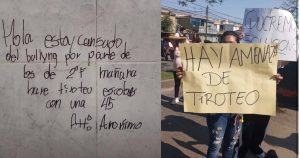 Hola estoy cansado
del bullyng por parte de
los de 2°F mañana
hare tiroteo escolar
con una 45
Att: Anonimo
HAY AMENAZA
DE
TIROTEO
QUEREM